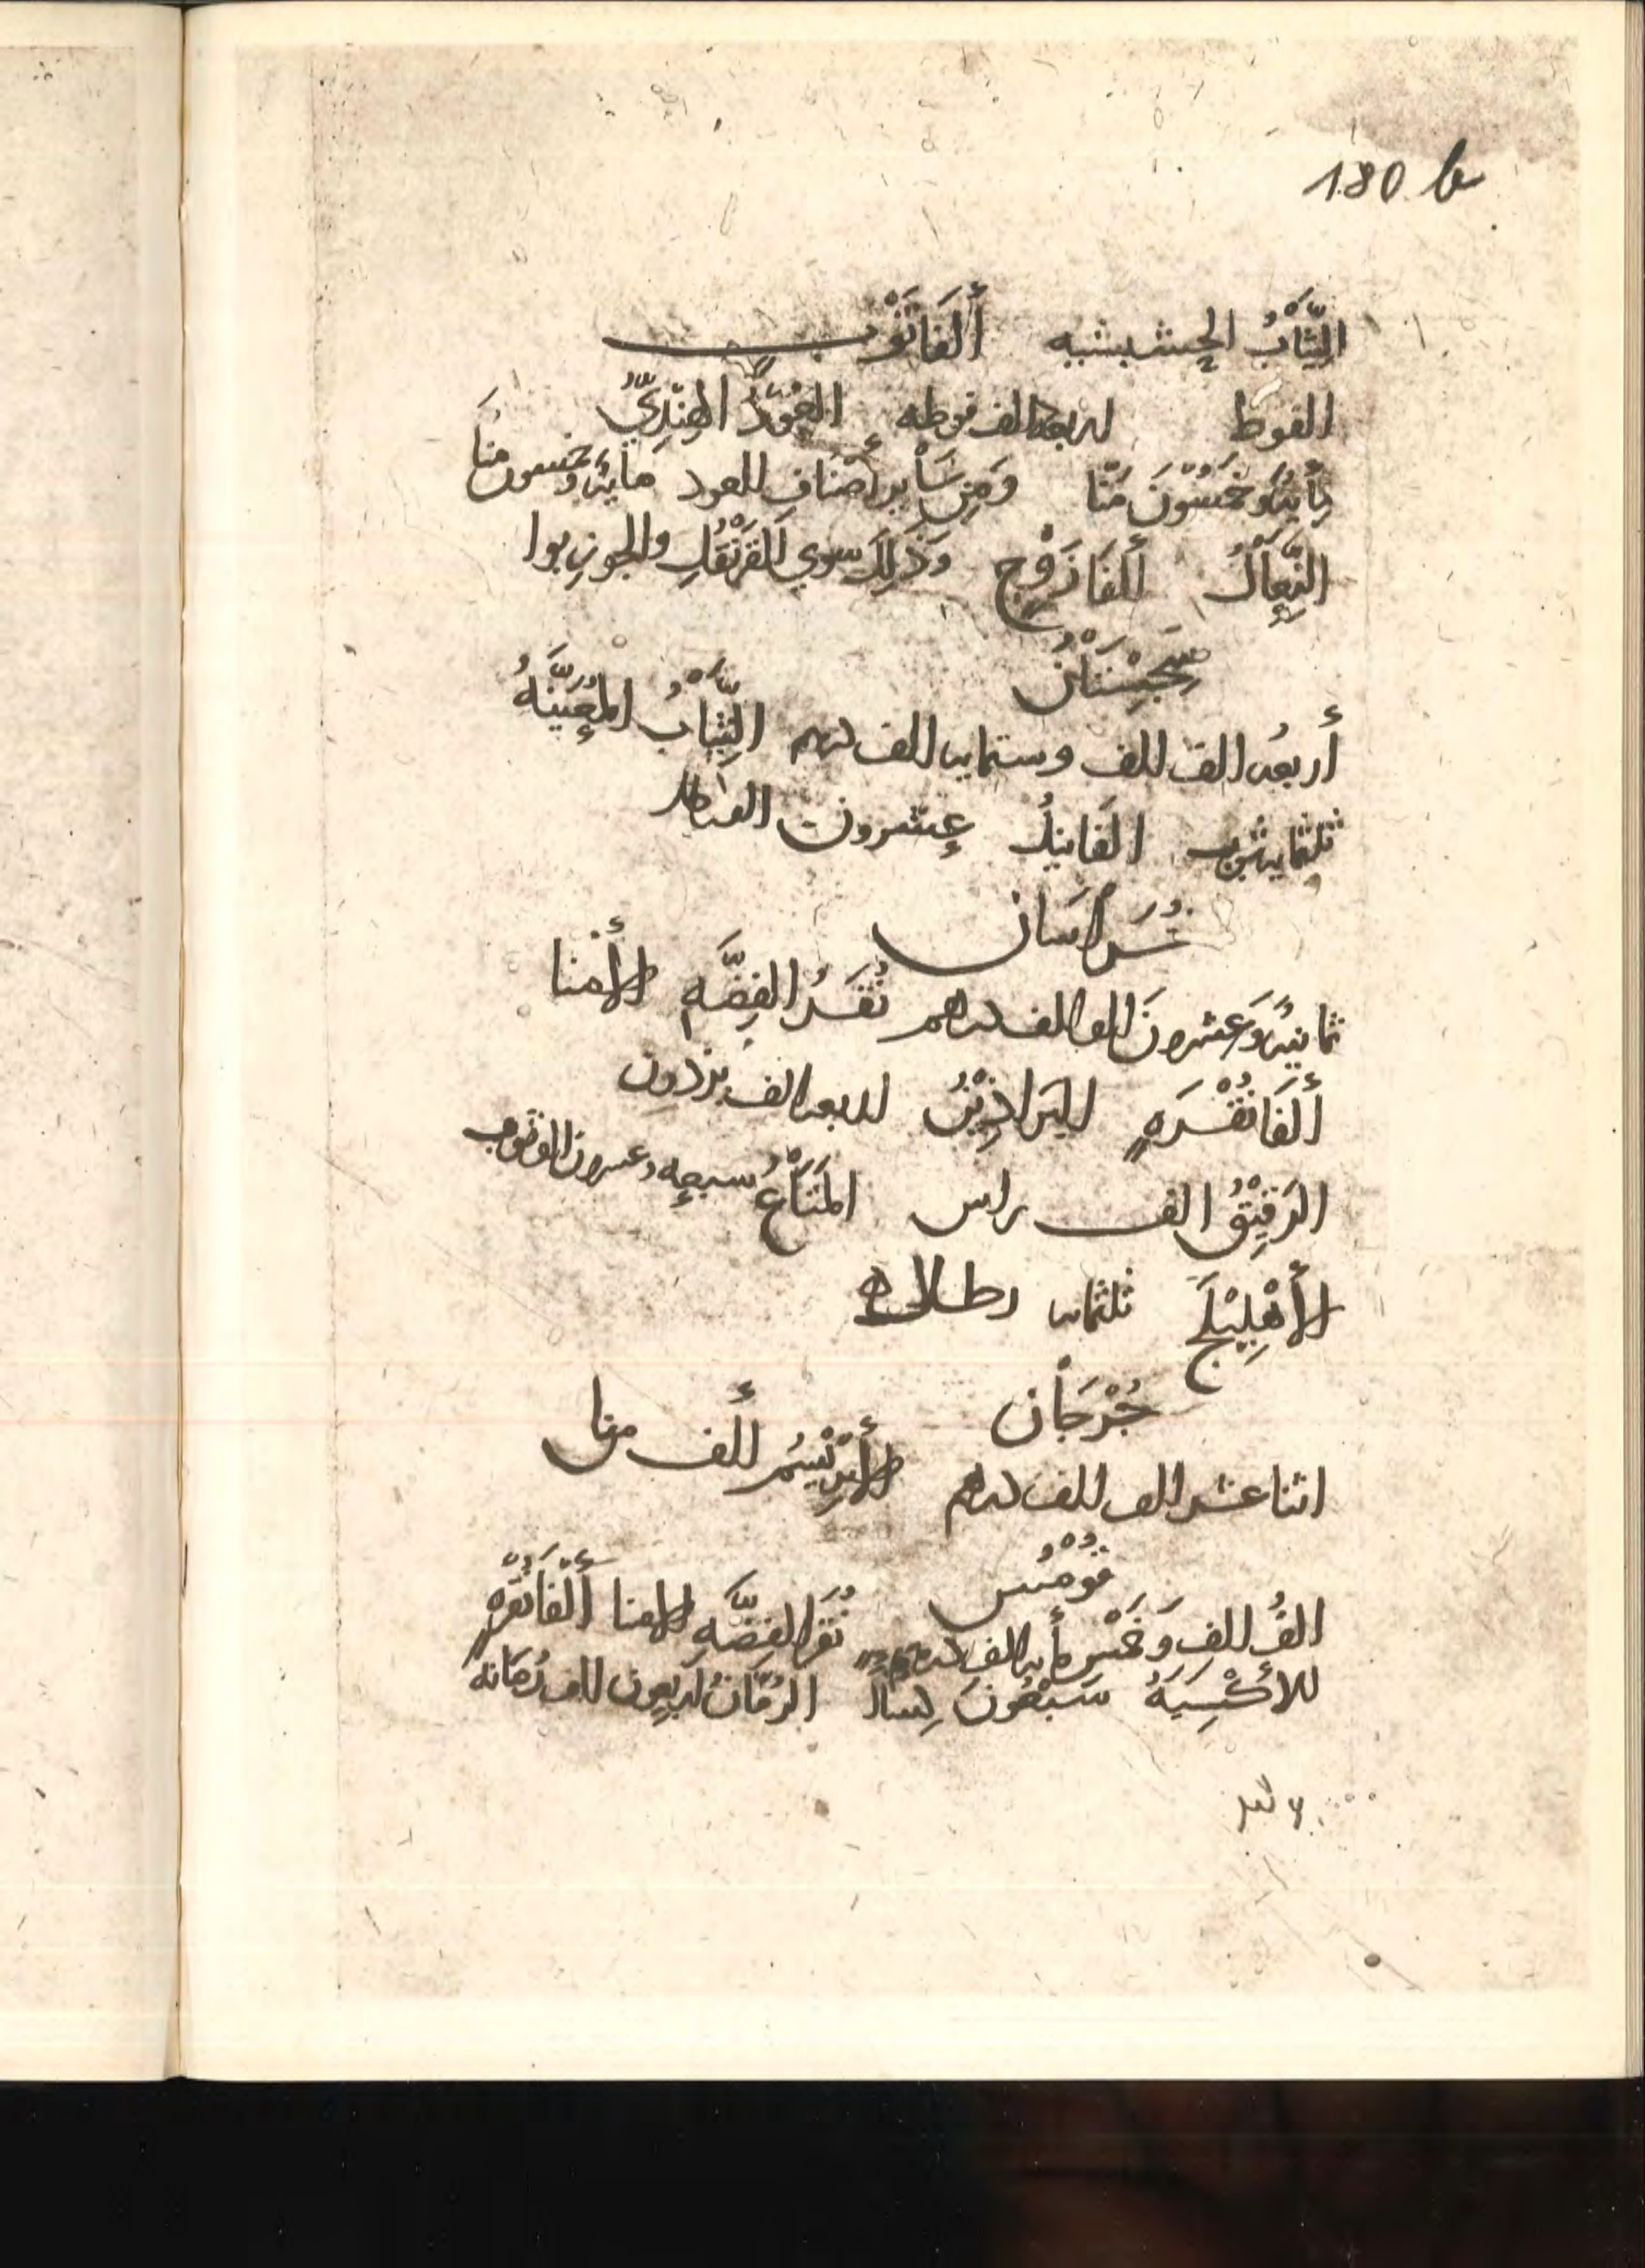 180 b
الثِّيَابُ الحشيشيه أَلفَا ثَوْب
الفوط اربعه الف فوطه العُوْدُ الهِنْدِيُّ
مِأيَهٌ وَخَمْسُوْنَ مَنًّا وَمِن سَأيرِ أَصْنَافِ العود مايَهٌ وخمسون منًا
النِّعِالُ أَلفَا زَوْج وَذَلِكَ سوي القَرَنْفُلِ والجوزبوا
سِجِسْتَانُ
أربعه الف الف وستمايه الف درهم الثِّيَابُ المُعَيَّنَهُ
ثلثمايه ثوب الفَانِيدُ عِشرون الف رطل
خُرَاسَان
ثمانيَهٌ وَعشرونَ الف الف درهم نُقَرُ الفِضَّهِ الأمنا
أَلفَا نُقْرَهٍ البَراذِيْنُ اربعه الف برذون
الرَقِيْقُ الف راس المَتَاعُ سبعه وعشرون الف ثوب
الأَهْلِيْلَج ثلثمايه رطل
جُرْجَان
اثنا عشر الف الف درهم الأبرِيْسَمُ أَلف منا
قُوْمُس
الفُ الفِ وَخَمْسُ مأيه الف درهم نُقَرُ الفِضَّهِ الامنا أَلْفَا نُقْرَهٍ
الأكْسِيَهُ سَبْعُونَ كِسا الرُمَّانُ اربعون الف رُمانه